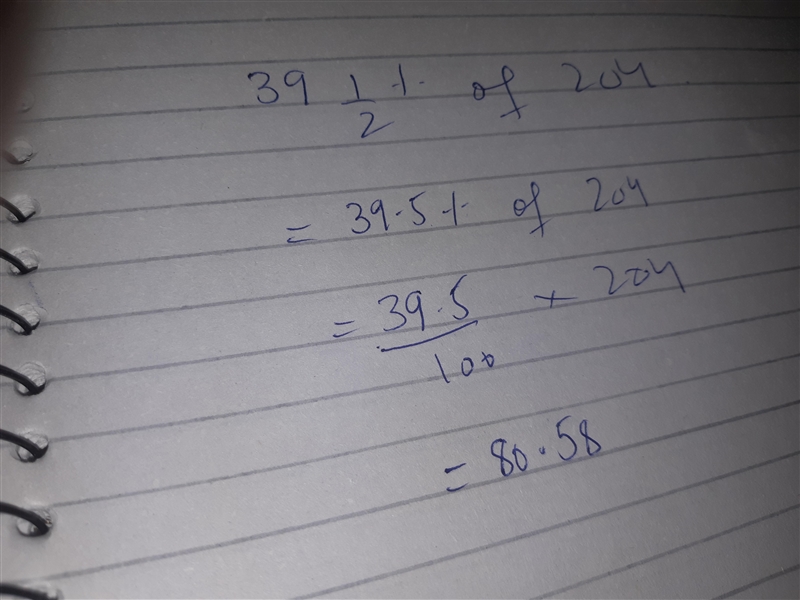 39 1/2 % of 204
= 39.5 % of 204
= 39.5/100 × 204
= 80.58